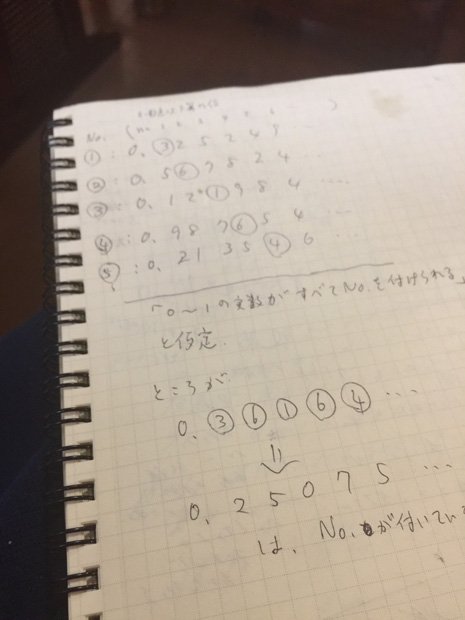 No.
① : 0. ③ 2 5 2 4
② : 0. 5 ⑥ 7 8 2 4
③ : 0. 1 2 ① 9 8 4 ...
④ : 0. 9 8 7 ⑥ 5 4
⑤ : 0. 2 1 3 5 ④ 6 ...
「0〜1の実数がすべてNo.を付けられる」
と仮定.
ところが
0. ③ ⑥ ① ⑥ ④ ...
0. 2 5 0 7 5 ...
は、No.が付いてい